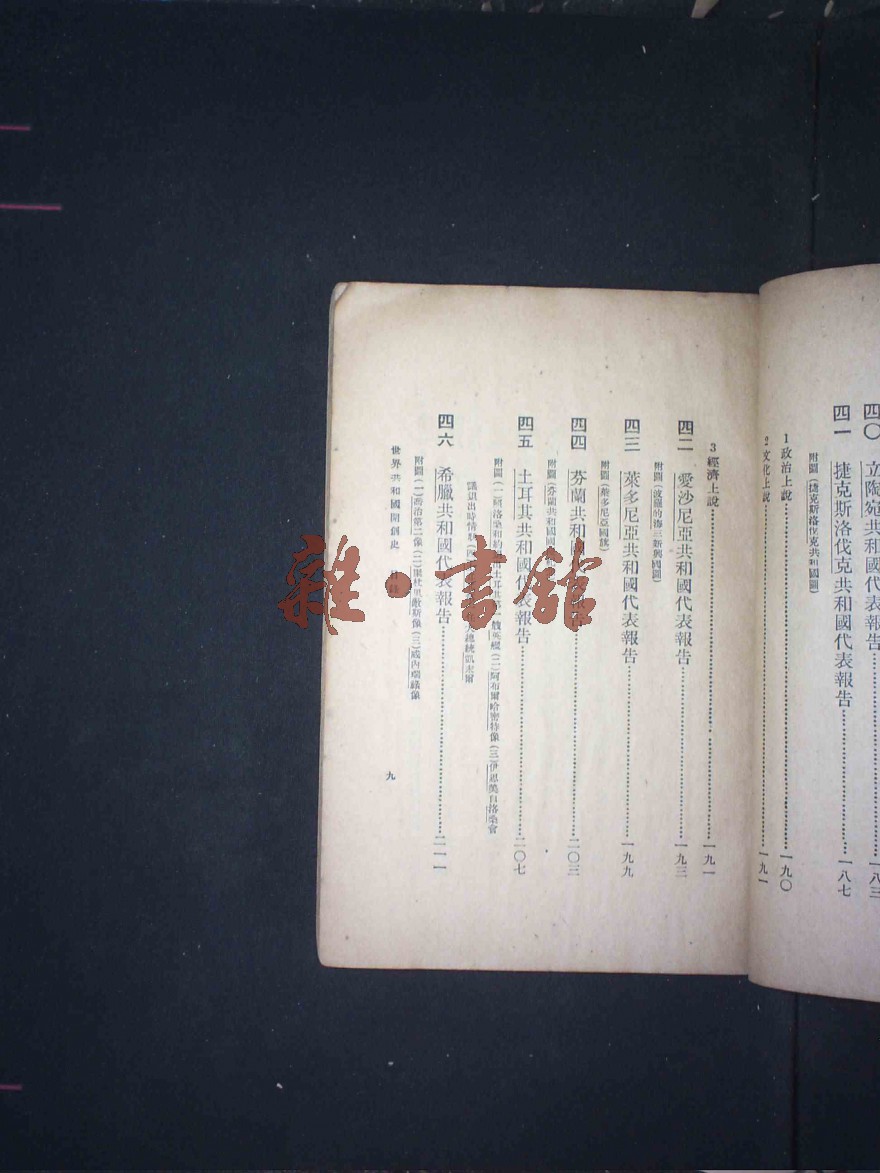 四〇 立陶宛共和國代表報告……一八三
四一 捷克斯洛伐克共和國代表報告……一八七
附圖(捷克斯洛伐克共和國圖)
1 政治上說……一九〇
2 文化上說……一九一
3 經濟上說……一九一
四二 愛沙尼亞共和國代表報告……一九三
附圖(波羅的海三新興國圖)
四三 萊多尼亞共和國代表報告……一九九
附圖(萊多尼亞國旗)
四四 芬蘭共和 報告……二〇三
附圖(芬蘭共和國國
四五 土耳其共和國代表報告……二〇七
附圖(一)阿洛樂和約 土耳其 艦英艦(二)阿布爾哈密特像(三)伊思美自洛桑會
議返出時情 總統凱末爾
四六 希臘共和國代表報告……二一一
附圖(一)喬治第二像(二) 像(三)威內瑞祿像
世界共和國開創史 目錄
九
雜·書館